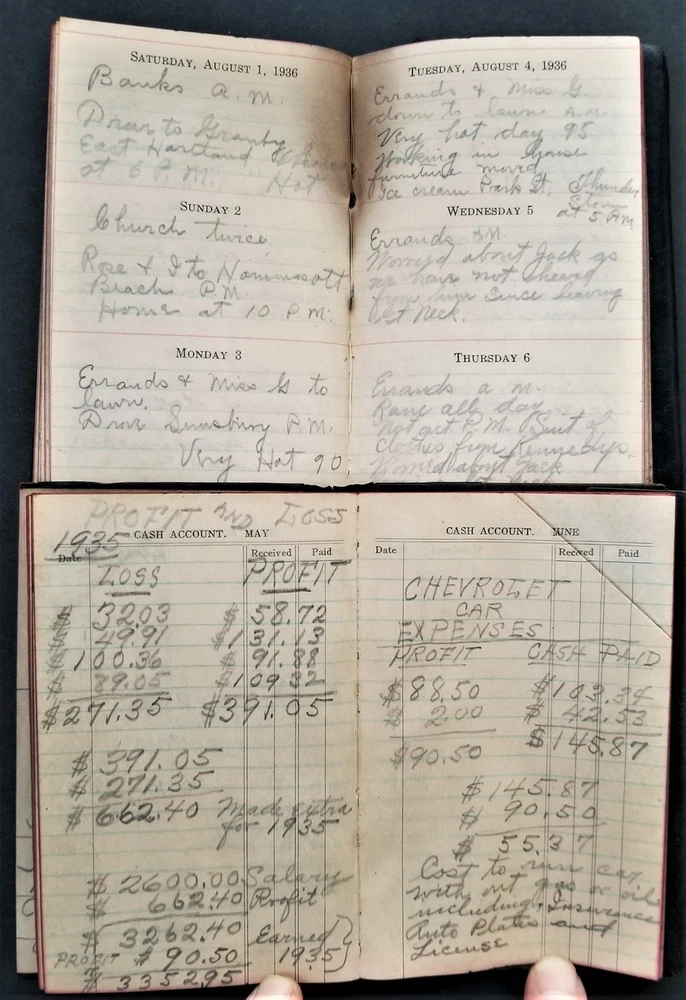 SATURDAY, AUGUST 1, 1936
Banks A.M.
Drove to Granby
East Hartland
at 6 P.M. Hot
SUNDAY 2
Church twice
Rose & I to
Beach P.M.
Home at 10 P.M.
MONDAY 3
Errands & Miss G to
lawn.
Drove Simsbury P.M.
Very Hot 90
TUESDAY, AUGUST 4, 1936
Errands & Miss G.
down to lawn A.M.
Very hot day 95
Working in House
furniture moved
Ice cream Park St. Thunder
Storm
at 5 P.M.
WEDNESDAY 5
Errands AM.
Worried about Jack as
we have not heard
from him since leaving
Neck.
THURSDAY 6
Errands a m.
Rain all day
Not out P.M. Suit of
clothes from Kennedys.
Worried about Jack
PROFIT AND LOSS
1935 CASH ACCOUNT. MAY
Date Received Paid
LOSS PROFIT
$ 32.03 $ 58.72
$ 49.91 $ 131.13
$ 100.36 $ 91.88
$ 89.05 $ 109.32
$ 271.35 $ 391.05
$ 391.05
$ 271.35
$ 662.40 Made extra
for 1935
$ 2600.00 Salary
$ 662.40 Profit
$ 3262.40 Earned
PROFIT $ 90.50 1935
$ 3352.95
CASH ACCOUNT. JUNE
Date Received Paid
CHEVROLET
CAR
EXPENSES
PROFIT CASH PAID
$ 88.50 $ 103.34
$ 2.00 $ 42.53
$ 90.50 $ 145.87
$ 145.87
$ 90.50
$ 55.37
Cost to run car
with out gas or oil
including, Insurance
Auto Plates and
License